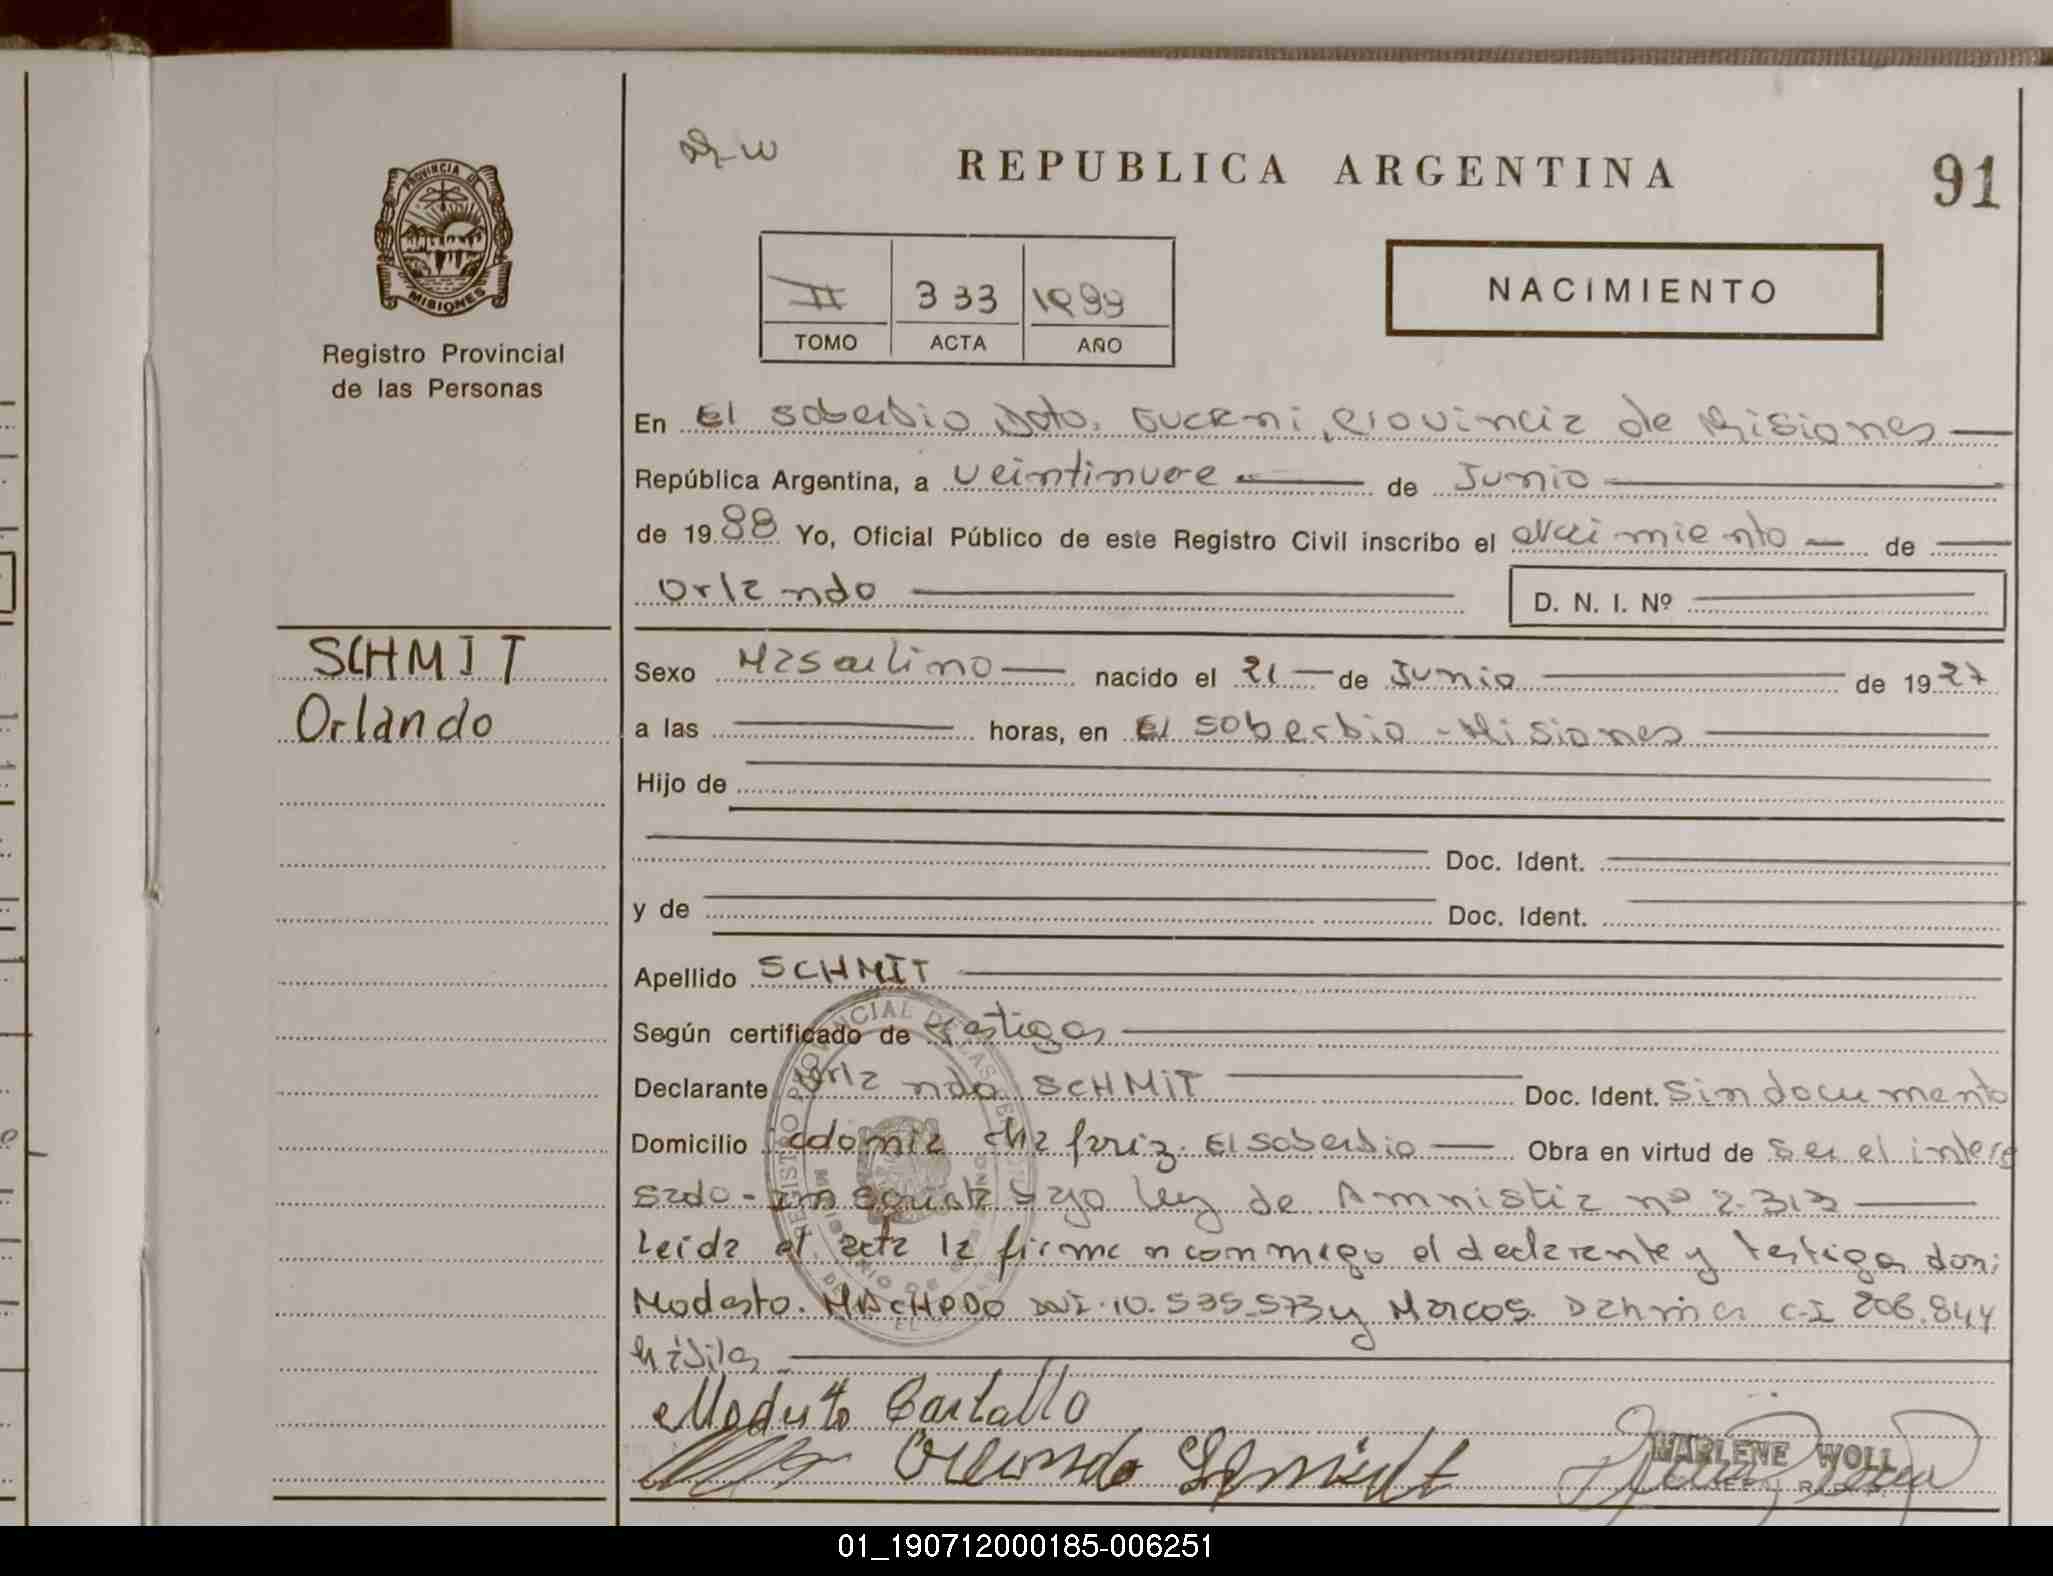 REPUBLICA ARGENTINA
91
PROVINCIA DE
MISIONES
Registro Provincial
de las Personas
II 333 1988
TOMO ACTA AÑO
NACIMIENTO
En El Soberbio Dpto. Guarani, Provincia de Misiones
República Argentina, a veintinueve de Junio
de 1988 Yo, Oficial Público de este Registro Civil inscribo el nacimiento de
Orlando D. N. I. Nº
SCHMIT
Orlando
Sexo Masculino nacido el 21 de Junio de 1927
a las horas, en El Soberbio - Misiones
Hijo de
Doc. Ident.
y de Doc. Ident.
Apellido SCHMIT
Según certificado de testigos
Declarante Orlando SCHMIT Doc. Ident. Sin documento
Domicilio El Soberbio Obra en virtud de ser el intere
sado - bajo Ley de Amnistia nº
Leida el acta la firman conmigo el declarante y testigos don:
Modesto. MACHADO DNI. 10.535.573 y Marcos C-I 206.844
Modesto
Orlando
MARLENE WOLL
01_190712000185-006251